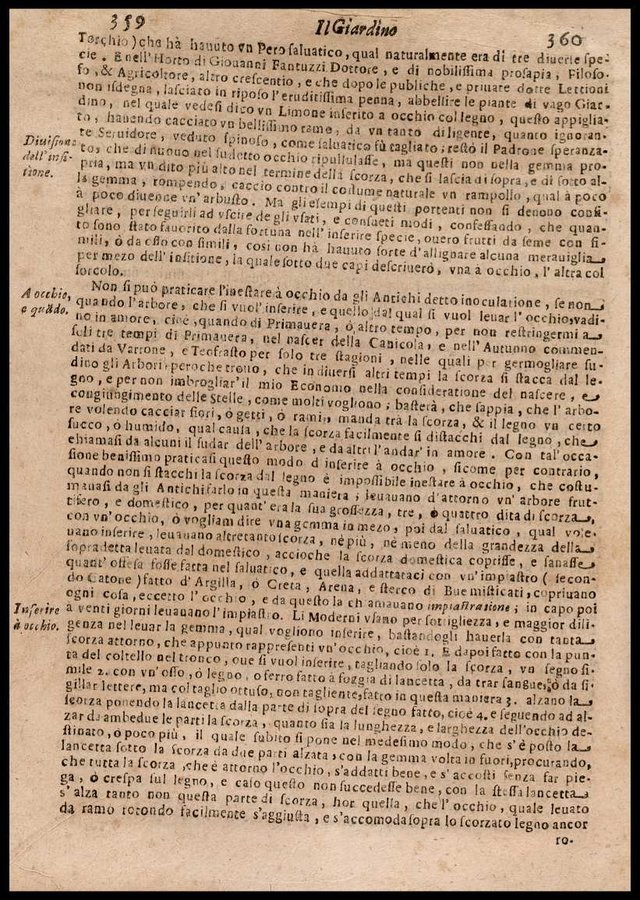 359 Il Giardino 360
Torchio) che hà hauuto vn Pero saluatico, qual naturalmente era di tre diuerse spe-
cie. E nell'Horto di Giouanni Fantuzzi Dottore, e di nobilissima prosapia, Filoso-
fo, & Agricoltore, altro crescentio, e che dopo le publiche, e priuate dotte Lettioni
non isdegna, lasciato in riposo l'eruditissima penna, abbellire le piante di vago Giar-
dino, nel quale vedesi dico vn Limone inserito a occhio col legno, questo appiglia-
to, hauendo cacciato vn bellissimo ramo, da vn tanto diligente, quanto ignoran-
te Seruidore, veduto spinoso, come saluatico fù tagliato; restò il Padrone speranza-
Diuisione
dell'insi-
tione.
to, che di nuouo nel sudetto occhio ripullulasse, ma questi non nella gemma pro-
pria, ma vn dito più alto nel termine della scorza, che si lascia di sopra, e di sotto al-
la gemma, rompendo, cacciò contro il costume naturale vn rampollo, qual à poco
à poco diuenne vn'arbusto. Ma gli esempi di questi portenti non si denono consi-
gliare, per seguirli ad vscire degli vsati, e consueti modi, confessando, che quan-
to sono stato fauorito dalla fortuna nell'inserire specie, ouero frutti da seme con si-
mili, ò da osso con simili, così non hà hauuto sorte d'allignare alcuna merauiglia
per mezo dell'insitione, la quale sotto due capi descriuerò, vna à occhio, l'altra col
sorcolo.
A occhio,
e quãdo.
Non si può praticare l'inestare à occhio da gli Antichi detto inoculatione, se non
quando l'arbore, che si vuol'inserire, e quello dal qual si vuol leuar l'occhio, vadi-
no in amore, cioè, quando di Primauera, ò altro tempo, per non restringermi a
soli tre tempi di Primauera, nel nascer della Canicola, e nell'Autunno commen-
dati da Varrone, e Teofrasto per solo tre stagioni, nelle quali per germogliare su-
dino gli Arbori; peroche trouo, che in diuersi altri tempi la scorza si stacca dal le-
gno, e per non imbrogliar'il mio Economo nella consideratione del nascere, e
congiungimento delle Stelle, come molti vogliono; basterà, che sappia, che l'arbo-
re volendo cacciar fiori, ò getti, ò rami, manda trà la scorza, & il legno vn certo
succo, ò humido, qual causa, che la scorza facilmente si distacchi dal legno, che
chiamasi da alcuni il sudar dell'arbore, e da altri l'andar'in amore. Con tal'occa-
sione benissimo praticasi questo modo d'inserire à occhio, sicome per contrario,
quando non si stacchi la scorza dal legno è impossibile inestare à occhio, che costu-
mauasi da gli Antichi farlo in questa maniera; leuauano d'attorno vn'arbore frut-
tifero, e domestico, per quant'era la sua grossezza, tre, ò quattro dita di scorza,
con vn'occhio, ò vogliam dire vna gemma in mezo, poi dal saluatico, qual vole-
uano inserire, leuauano altretanto scorza, nè più, nè meno della grandezza della
sopradetta leuata dal domestico, accioche la scorza domestica coprisse, e sanasse
quant'offesa fosse fatta nel saluatico, e quella addattataci con vn'impiastro (secon-
do Catone) fatto d'Argilla, ò Creta, Arena, e sterco di Bue misticati, copriuano
ogni cosa, eccetto l'occhio, e da questo la chiamauano impiastratione; in capo poi
Inserire
à occhio.
à venti giorni leuauano l'impiastro. Li Moderni vsano per sottigliezza, e maggior dili-
genza nel leuar la gemma, qual vogliono inserire, bastandogli hauerla con tanta
scorza attorno, che appunto rappresenti vn'occhio, cioè 1. E dapoi fatto con la pun-
ta del coltello nel tronco, oue si vuol inserire, tagliando solo la scorza, vn segno si-
mile 2. con vn'osso, ò legno, o ferro fatto à foggia di lancetta, da trar sangue, ò da si-
gillar lettere, ma col taglio ottuso, non tagliente, fatto in questa maniera 3. alzano la
scorza ponendo la lancetta dalla parte di sopra del segno fatto, cioè 4. e seguendo ad al-
zar da ambedue le parti la scorza, quanto sia la lunghezza, e larghezza dell'occhio de-
stinato, ò poco più, il quale subito si pone nel medesimo modo, che s'è posto la
lancetta sotto la scorza da due parti alzata, con la gemma volta in fuori, procurando,
che tutta la scorza, che è attorno l'occhio, s'addatti bene, e s'accosti senza far pie-
ga, ò crespa sul legno, e caso questo non succedesse bene, con la stessa lancetta
s'alza tanto non questa parte di scorza, hor quella, che l'occhio, quale leuato
da ramo rotondo facilmente s'aggiusta, e s'accomoda sopra lo scorzato legno ancor
ro-